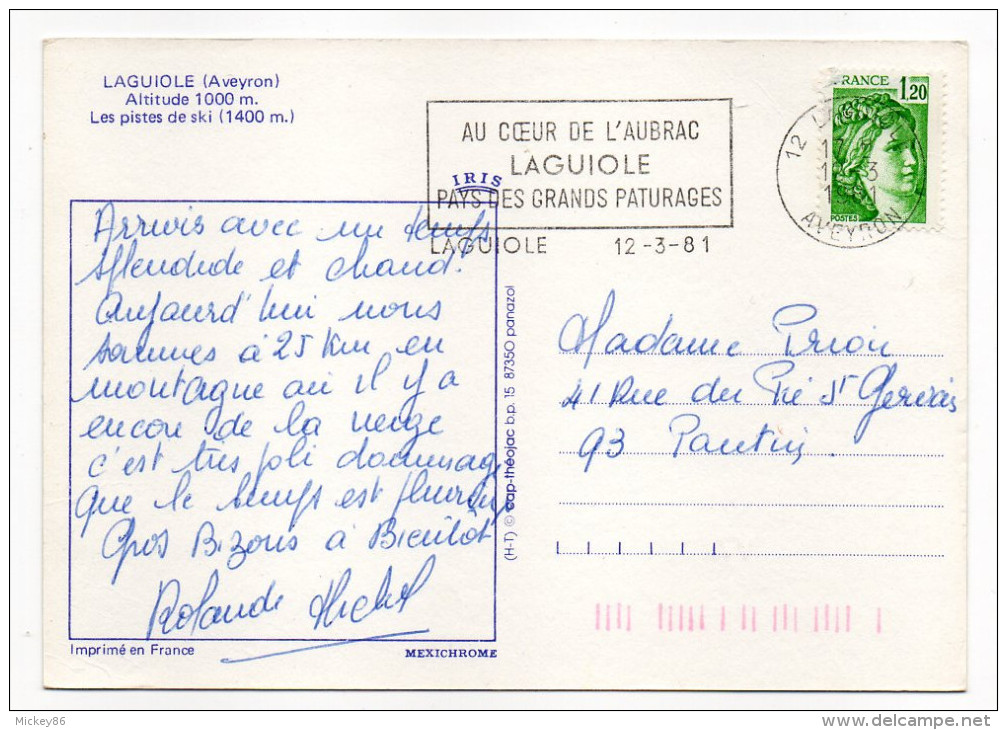 LAGUIOLE (Aveyron)
Altitude 1000 m.
Les pistes de ski (1400 m.)
AU CŒUR DE L'AUBRAC
LAGUIOLE
PAYS DES GRANDS PATURAGES
LAGUIOLE 12-3-81
FRANCE
1,20
POSTES
12 LAGUIOLE
AVEYRON
IRIS
Arrivés avec un temps
splendide et chaud.
Aujourd'hui nous
sommes à 25 Km en
montagne ou il y a
encore de la neige
c'est très joli dommage
que le temps est pluvieux
Gros Bizous à Bientôt
Rolande Michel
Madame
41 Rue du Pré St Gervais
93 Pantin.
(H-T) © cap-théojac b.p. 15 87350 panazol
Imprimé en France
MEXICHROME
Mickey86
http://www.delcampe.net